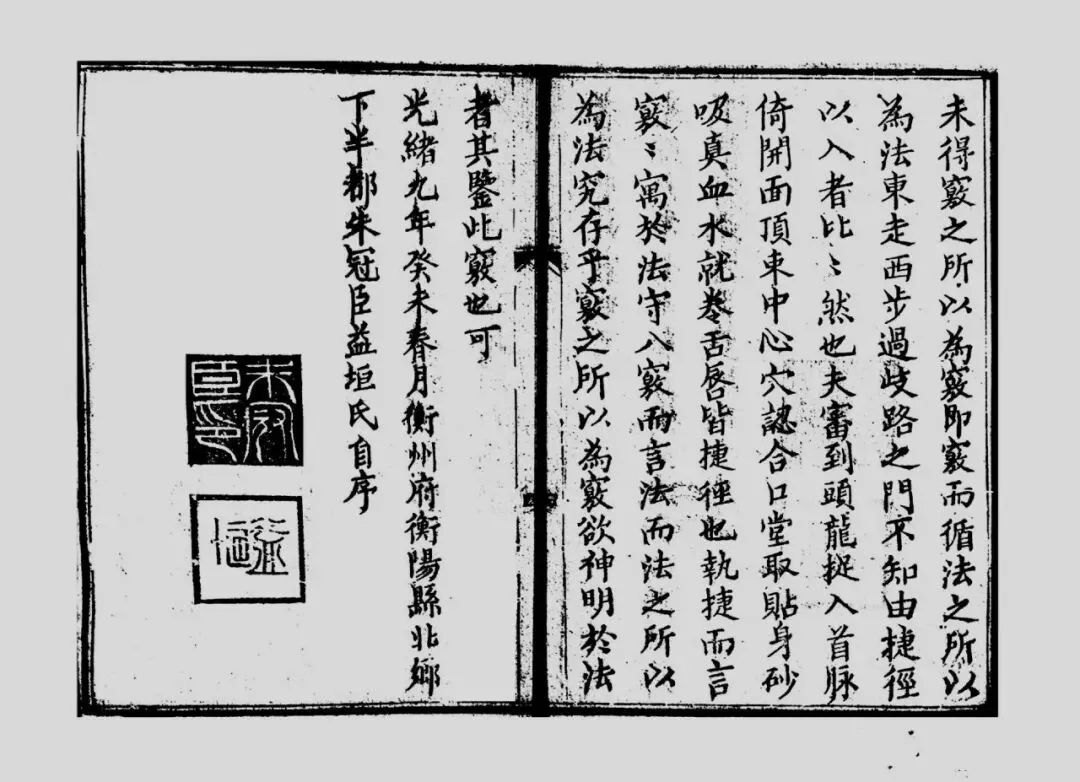 未得竅之所以為竅即竅而循法之所以
為法東走西步過歧路之門不知由捷徑
以入者比〻然也夫審到頭龍捉入首脉
倚開面頂束中心穴認合口堂取貼身砂
吸真血水就卷舌唇皆捷徑也執捷而言
竅〻寓於法守八竅而言法而法之所以
為法究存乎竅之所以為竅欲神明於法
者其鑒此竅也可
光緒九年癸未春月衡州府衡陽縣北鄉
下半都朱冠臣益垣氏自序
朱冠臣印
益垣